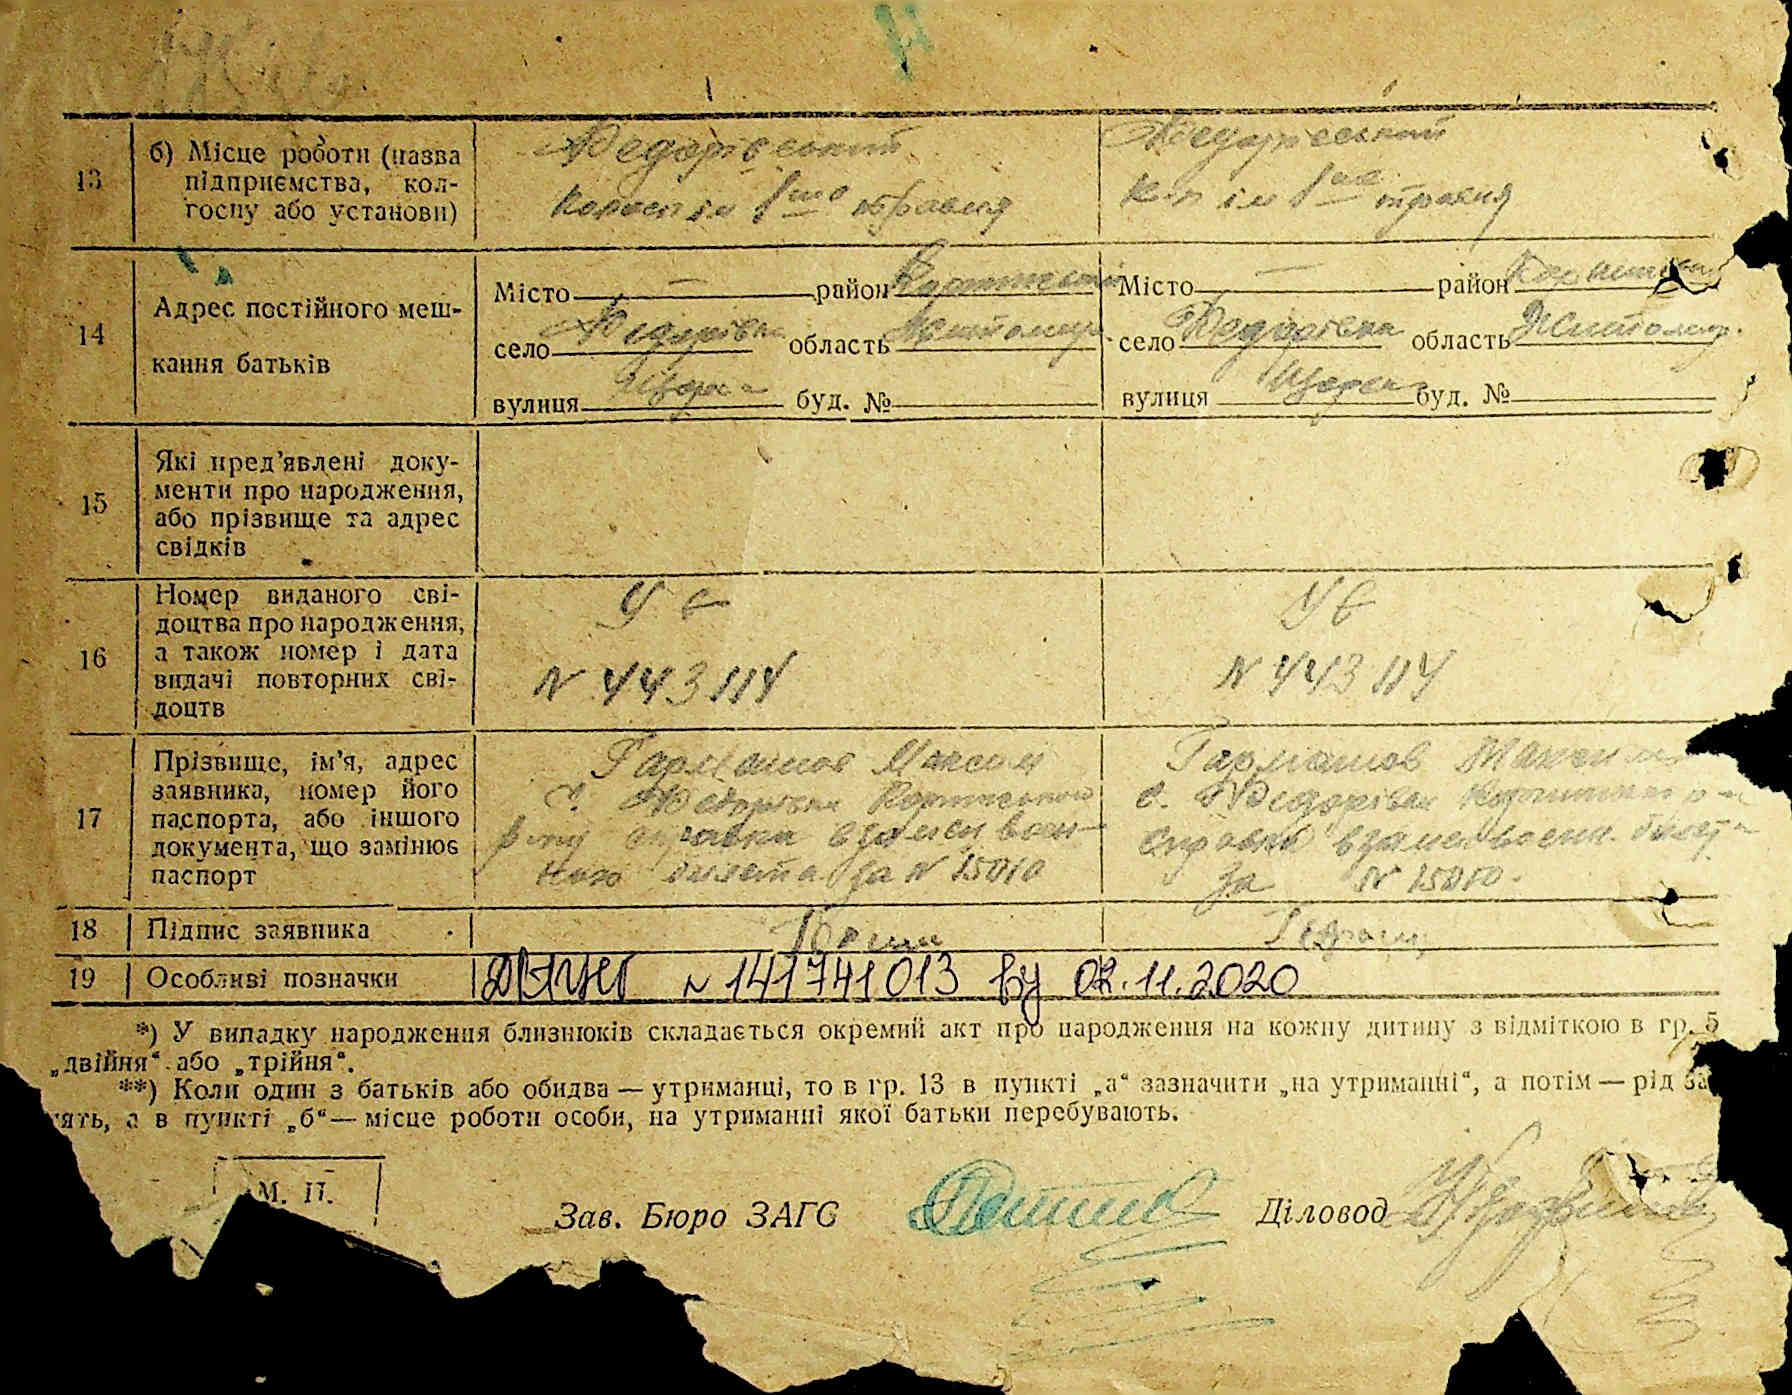 13
б) Місце роботи (назва
підприємства, кол-
госпу або установи)
Федорівський
колгосп ім 1го травня
Федорівський
к-п ім 1го травня
14
Адрес постійного меш-
кання батьків
Місто — район
село Федорівка область Житомир
вулиця буд. №
Місто — район
село Федорівка область Житомир.
вулиця буд. №
15
Які пред'явлені доку-
менти про народження,
або прізвище та адрес
свідків
16
Номер виданого сві-
доцтва про народження,
а також номер і дата
видачі повторних сві-
доцтв
N 443114
N 443114
17
Прізвище, ім'я, адрес
заявника, номер його
паспорта, або іншого
документа, що замінює
паспорт
Максим
с. Федорівка
справка взамен воен-
ного билета за N 15010
с. Федорівка
справка взамен военн. билет
за N 15010.
18
Підпис заявника
19
Особливі позначки
N 141741013 від 02.11.2020
*) У випадку народження близнюків складається окремий акт про народження на кожну дитину з відміткою в гр. 5
„двійня“ або „трійня“.
**) Коли один з батьків або обидва — утриманці, то в гр. 13 в пункті „а“ зазначити „на утриманні“, а потім — рід за
ять, а в пункті „б“ — місце роботи особи, на утриманні якої батьки перебувають.
М. П.
Зав. Бюро ЗАГС
Діловод